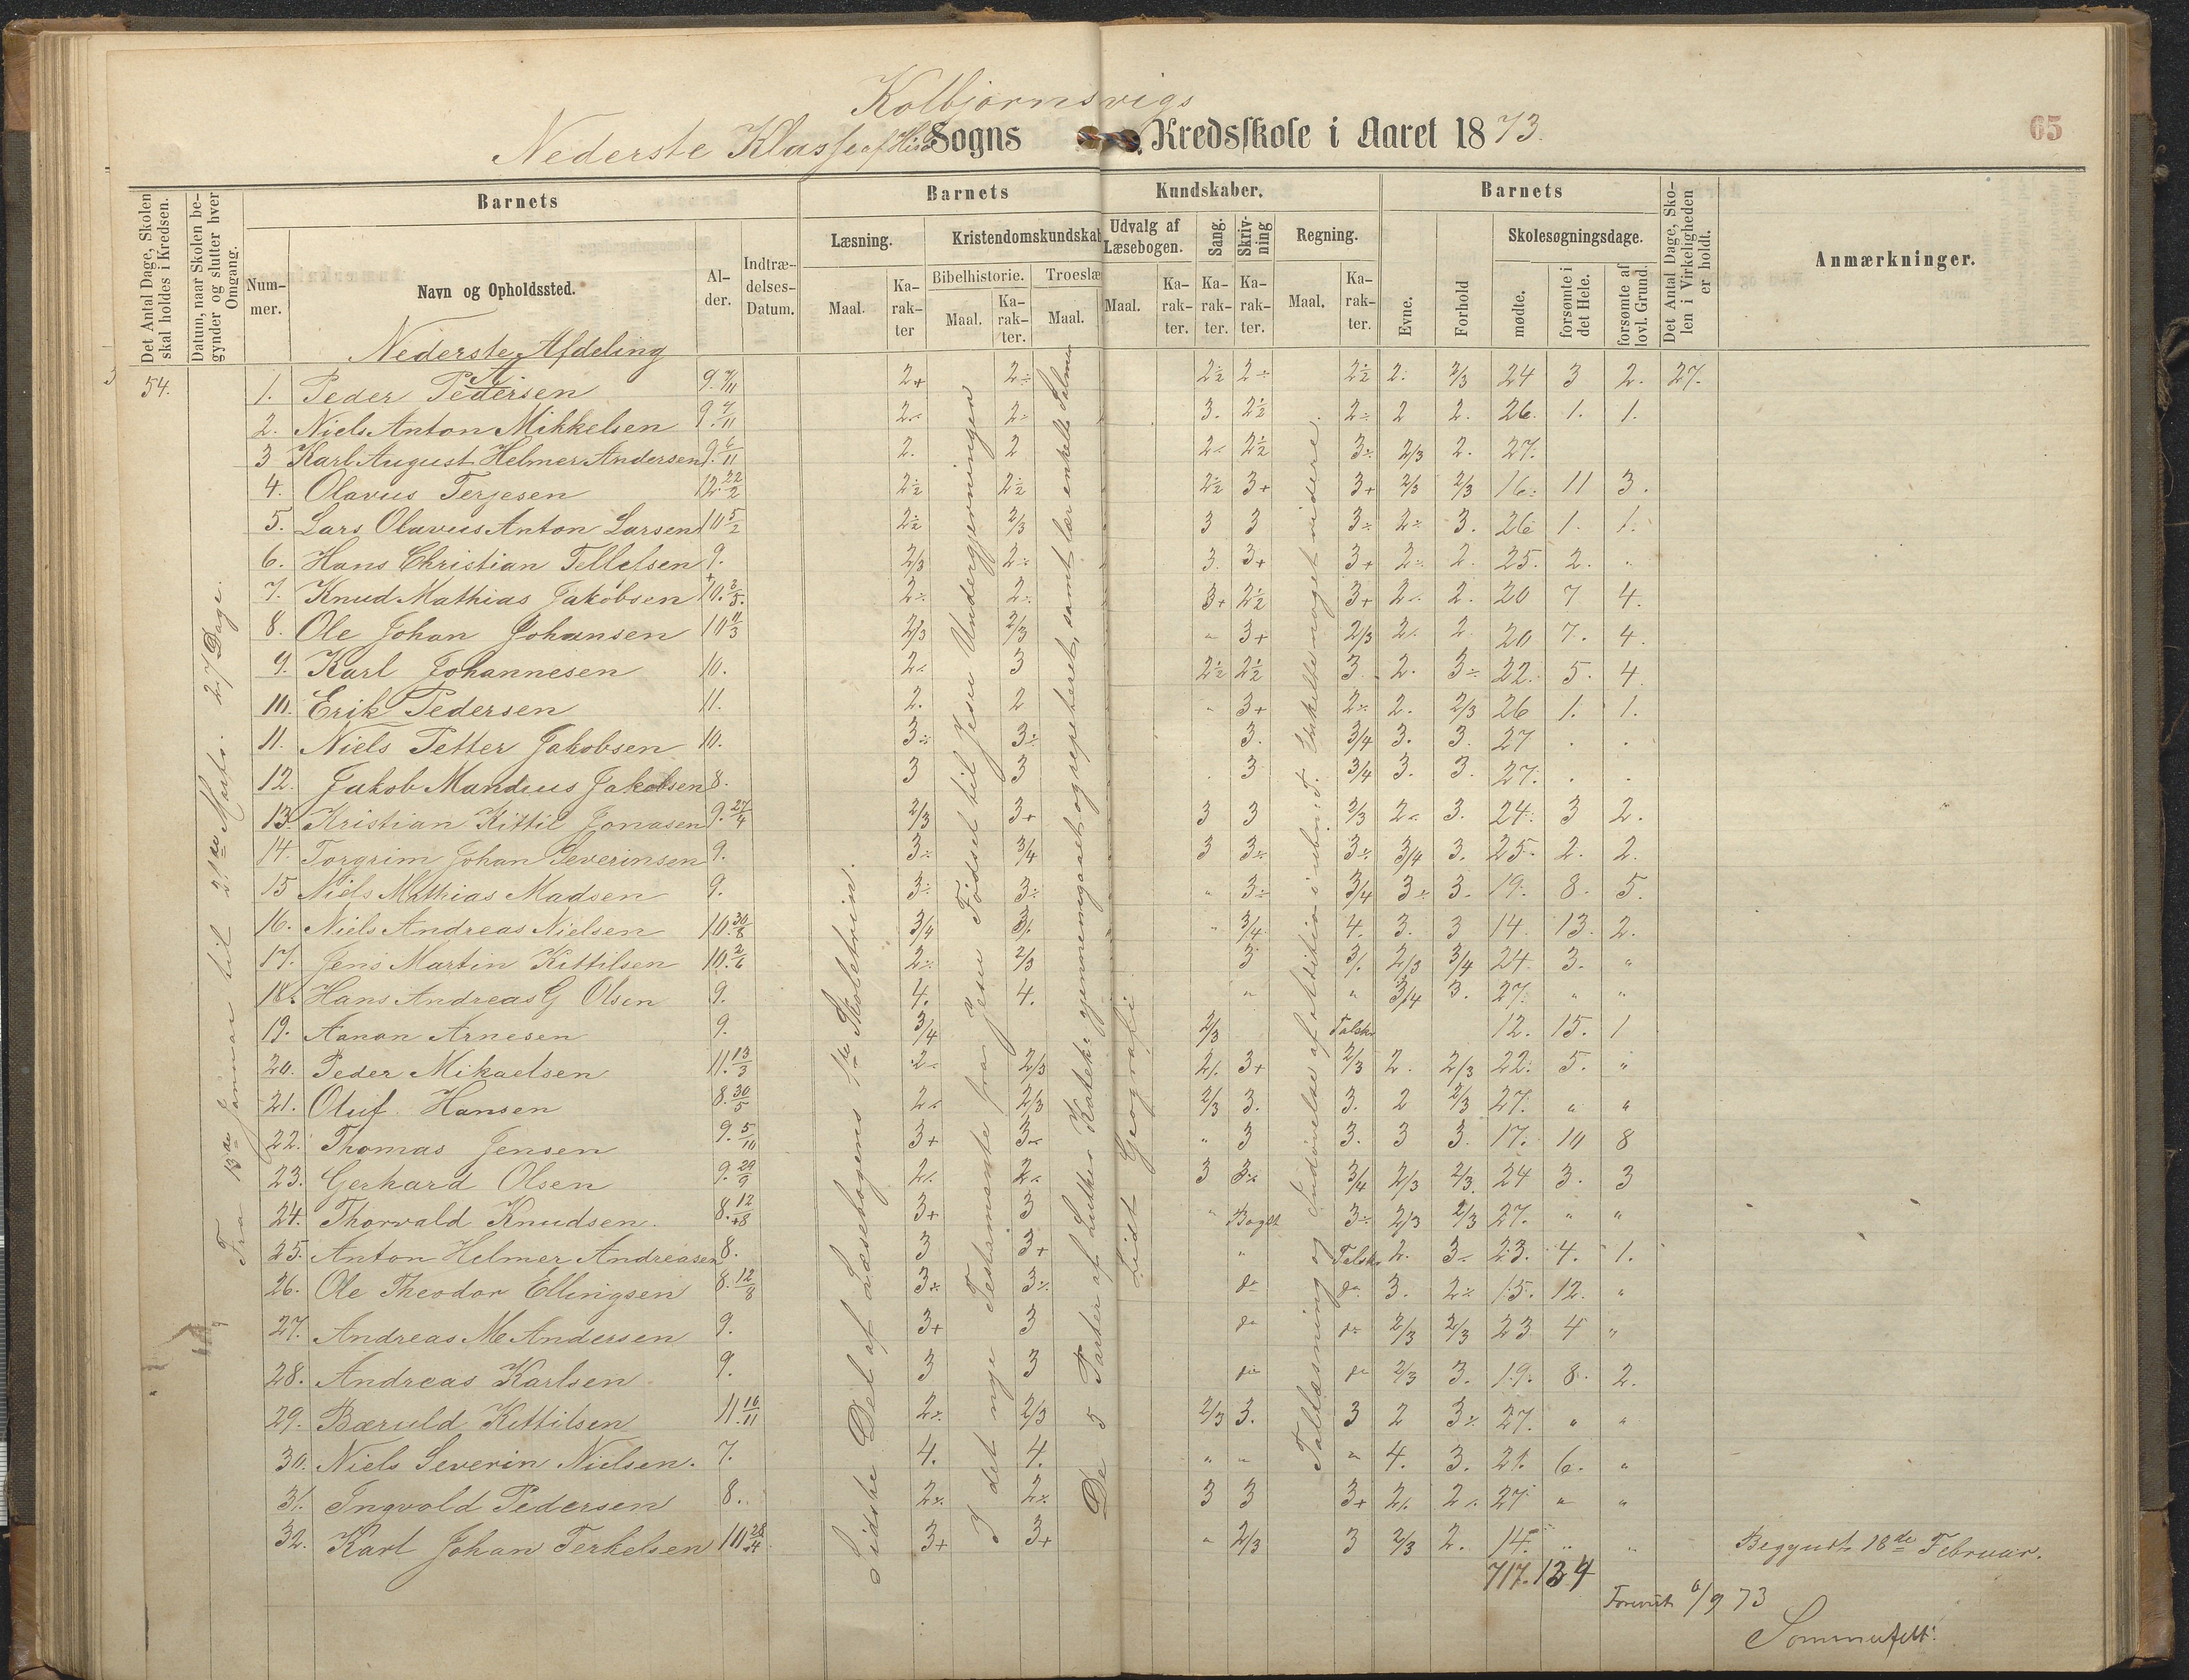 Kolbjørnsvigs
Nederste Klasse af Hisø Sogns Kredsskole i Aaret 1873.
65
Det Antal Dage, Skolen skal holdes i Kredsen.
Datum, naar Skolen begynder og slutter hver Omgang.
Barnets
Nummer.
Navn og Opholdssted.
Alder.
Indtrædelses-Datum.
Barnets Kundskaber.
Læsning.
Maal.
Karakter
Kristendomskundskab
Bibelhistorie.
Maal.
Karakter.
Troeslæ
Maal.
Udvalg af Læsebogen.
Maal.
Karakter.
Sang.
Karakter.
Skrivning
Karakter.
Regning.
Maal.
Karakter.
Barnets
Evne.
Forhold
Skolesøgningsdage.
mødte.
forsømte i det Hele.
forsømte af lovl. Grund.
Det Antal Dage, Skolen i Virkeligheden er holdt.
Anmærkninger.
Nederste Afdeling
54.
Fra 13de Januar til 21de Marts. 27 Dage.
Sidste Del af Læsebogens 1ste Skoletrin.
I det nye Testamente fra Jesu Fødsel til Jesu Undergjerninger
De 5 Parter af Luthers Kateks: gjennemgaaet og repeteret, samt lær enkelte Salmer
Lidt Geografi
Tallæsning og Indøvelse af addition i ubn: T. Enkelte noget videre.
1. Peder Pedersen 9. 7/11 2+ 2÷ 2½ 2÷ 2½ 2. 2/3 24 3 2. 27.
2. Niels Anton Mikkelsen 9. 7/11 2÷ 2÷ 3. 2½ 2÷ 2 2. 26. 1. 1.
3 Karl August Helmer Andersen 9. 6/11 2. 2 2÷ 2½ 3÷ 2/3 2. 27.
4. Olavus Terjesen 12. 22/2 2½ 2½ 2½ 3+ 3+ 2/3 2/3 16. 11 3.
5. Lars Olavus Anton Larsen 10 5/2 2½ 2/3 3 3 3÷ 2÷ 3. 26 1. 1.
6. Hans Christian Tellefsen 9. 2/3 2÷ 3. 3+ 3+ 2÷ 2. 25. 2. "
7. Knud Mathias Jakobsen 10. 3/5. 2÷ 2÷ 3+ 2½ 3+ 2÷ 2. 20 7 4.
8. Ole Johan Johansen 10 11/3 2/3 2/3 " 3+ 2/3 2÷ 2. 20 7. 4.
9. Karl Johannesen 10. 2÷ 3 2½ 2½ 3. 2. 3÷ 22. 5. 4.
10. Erik Pedersen 11. 2. 2 " 3+ 2÷ 2. 2/3 26 1. 1.
11. Niels Petter Jakobsen 10. 3÷ 3÷ 3. 3/4 3. 3. 27 . .
12. Jakob Mandius Jakobsen 8. 3 3 . 3 3/4 3. 3. 27. . .
13. Kristian Kittil Jonasen 9. 27/4 2/3 3+ 3 3 2/3 2÷ 3. 24. 3 2.
14. Torgrim Johan Severinsen 9. 3÷ 3/4 3 3÷ 3÷ 3/4 3. 25. 2. 2.
15 Niels Mathias Madsen 9. 3÷ 3÷ " 3÷ 3/4 3÷ 3. 19. 8. 5.
16. Niels Andreas Nielsen 10. 30/8 3/4 3÷ " 3/4 4. 3. 3 14. 13. 2.
17. Jens Martin Kittilsen 10. 2/6 2÷ 2/3 3 3÷ 2/3 3/4 24. 3. "
18. Hans Andreas G Olsen 9. 4. 4. " " 3/4 3. 27. " "
19. Aanon Arnesen 9. 3/4 2/3 Talskr 12. 15. 1
20. Peder Mikaelsen 11. 13/3 2÷ 2/3 2÷ 3+ 2/3 2. 2/3 22. 5. "
21. Oluf Hansen 8. 30/5 2÷ 2/3 2/3 3. 3. 2 2/3 27. " "
22. Thomas Jensen 9. 5/10 3+ 3÷ " 3 3. 3 3. 17. 10 8
23. Gerhard Olsen 9. 29/9 2÷ 2÷ 3 3÷ 3/4 2/3 2/3. 24 3. 3
24. Thorvald Knudsen. 8. 12/8 3+ 3 " Bogst 3÷ 2/3 2/3 27. " "
25. Anton Helmer Andreasen 8. 3 3+ " Talskr 2. 3÷ 23. 4. 1.
26. Ole Theodor Ellingsen 8. 12/8 3÷ 3÷ do do 3. 2÷ 15. 12. "
27. Andreas M Andersen 9. 3+ 3 do do 2/3 2/3 23 4 "
28. Andreas Karlsen 9. 3 3 do do 2/3 3. 19. 8. 2.
29. Bæruld Kittilsen 11. 16/11 2÷ 2/3 2/3 3. 3 2 3÷ 27. " "
30. Niels Severin Nielsen. 7. 4. 4. " " " 4. 3. 21. 6. "
31. Ingvald Pedersen 8. 2÷ 2÷ 3 3 3+ 2÷ 2÷ 27 " "
32. Karl Johan Terkelsen 10 28/4 3+ 3+ " 2/3 3 2/3 2. 14. " " Begyndt 18de Februar.
717. 134
Forevist 6/9 73
Sommerfelt.